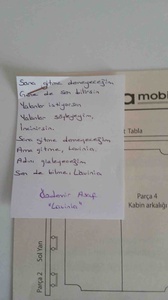 Sana gitme demeyeceğim.
Gene de sen bilirsin.
Yalanlar istiyorsan
Yalanlar söyleyeyim,
İncinirsin.
Sana gitme demeyeceğim,
Ama gitme, Lavinia.
Adını gizleyeceğim
Sen de bilme, Lavinia
Özdemir Asaf
"Lavinia"
mobi
Tabla
Parça 4
Kabin arkalığı
Sol Yan
Parça 2